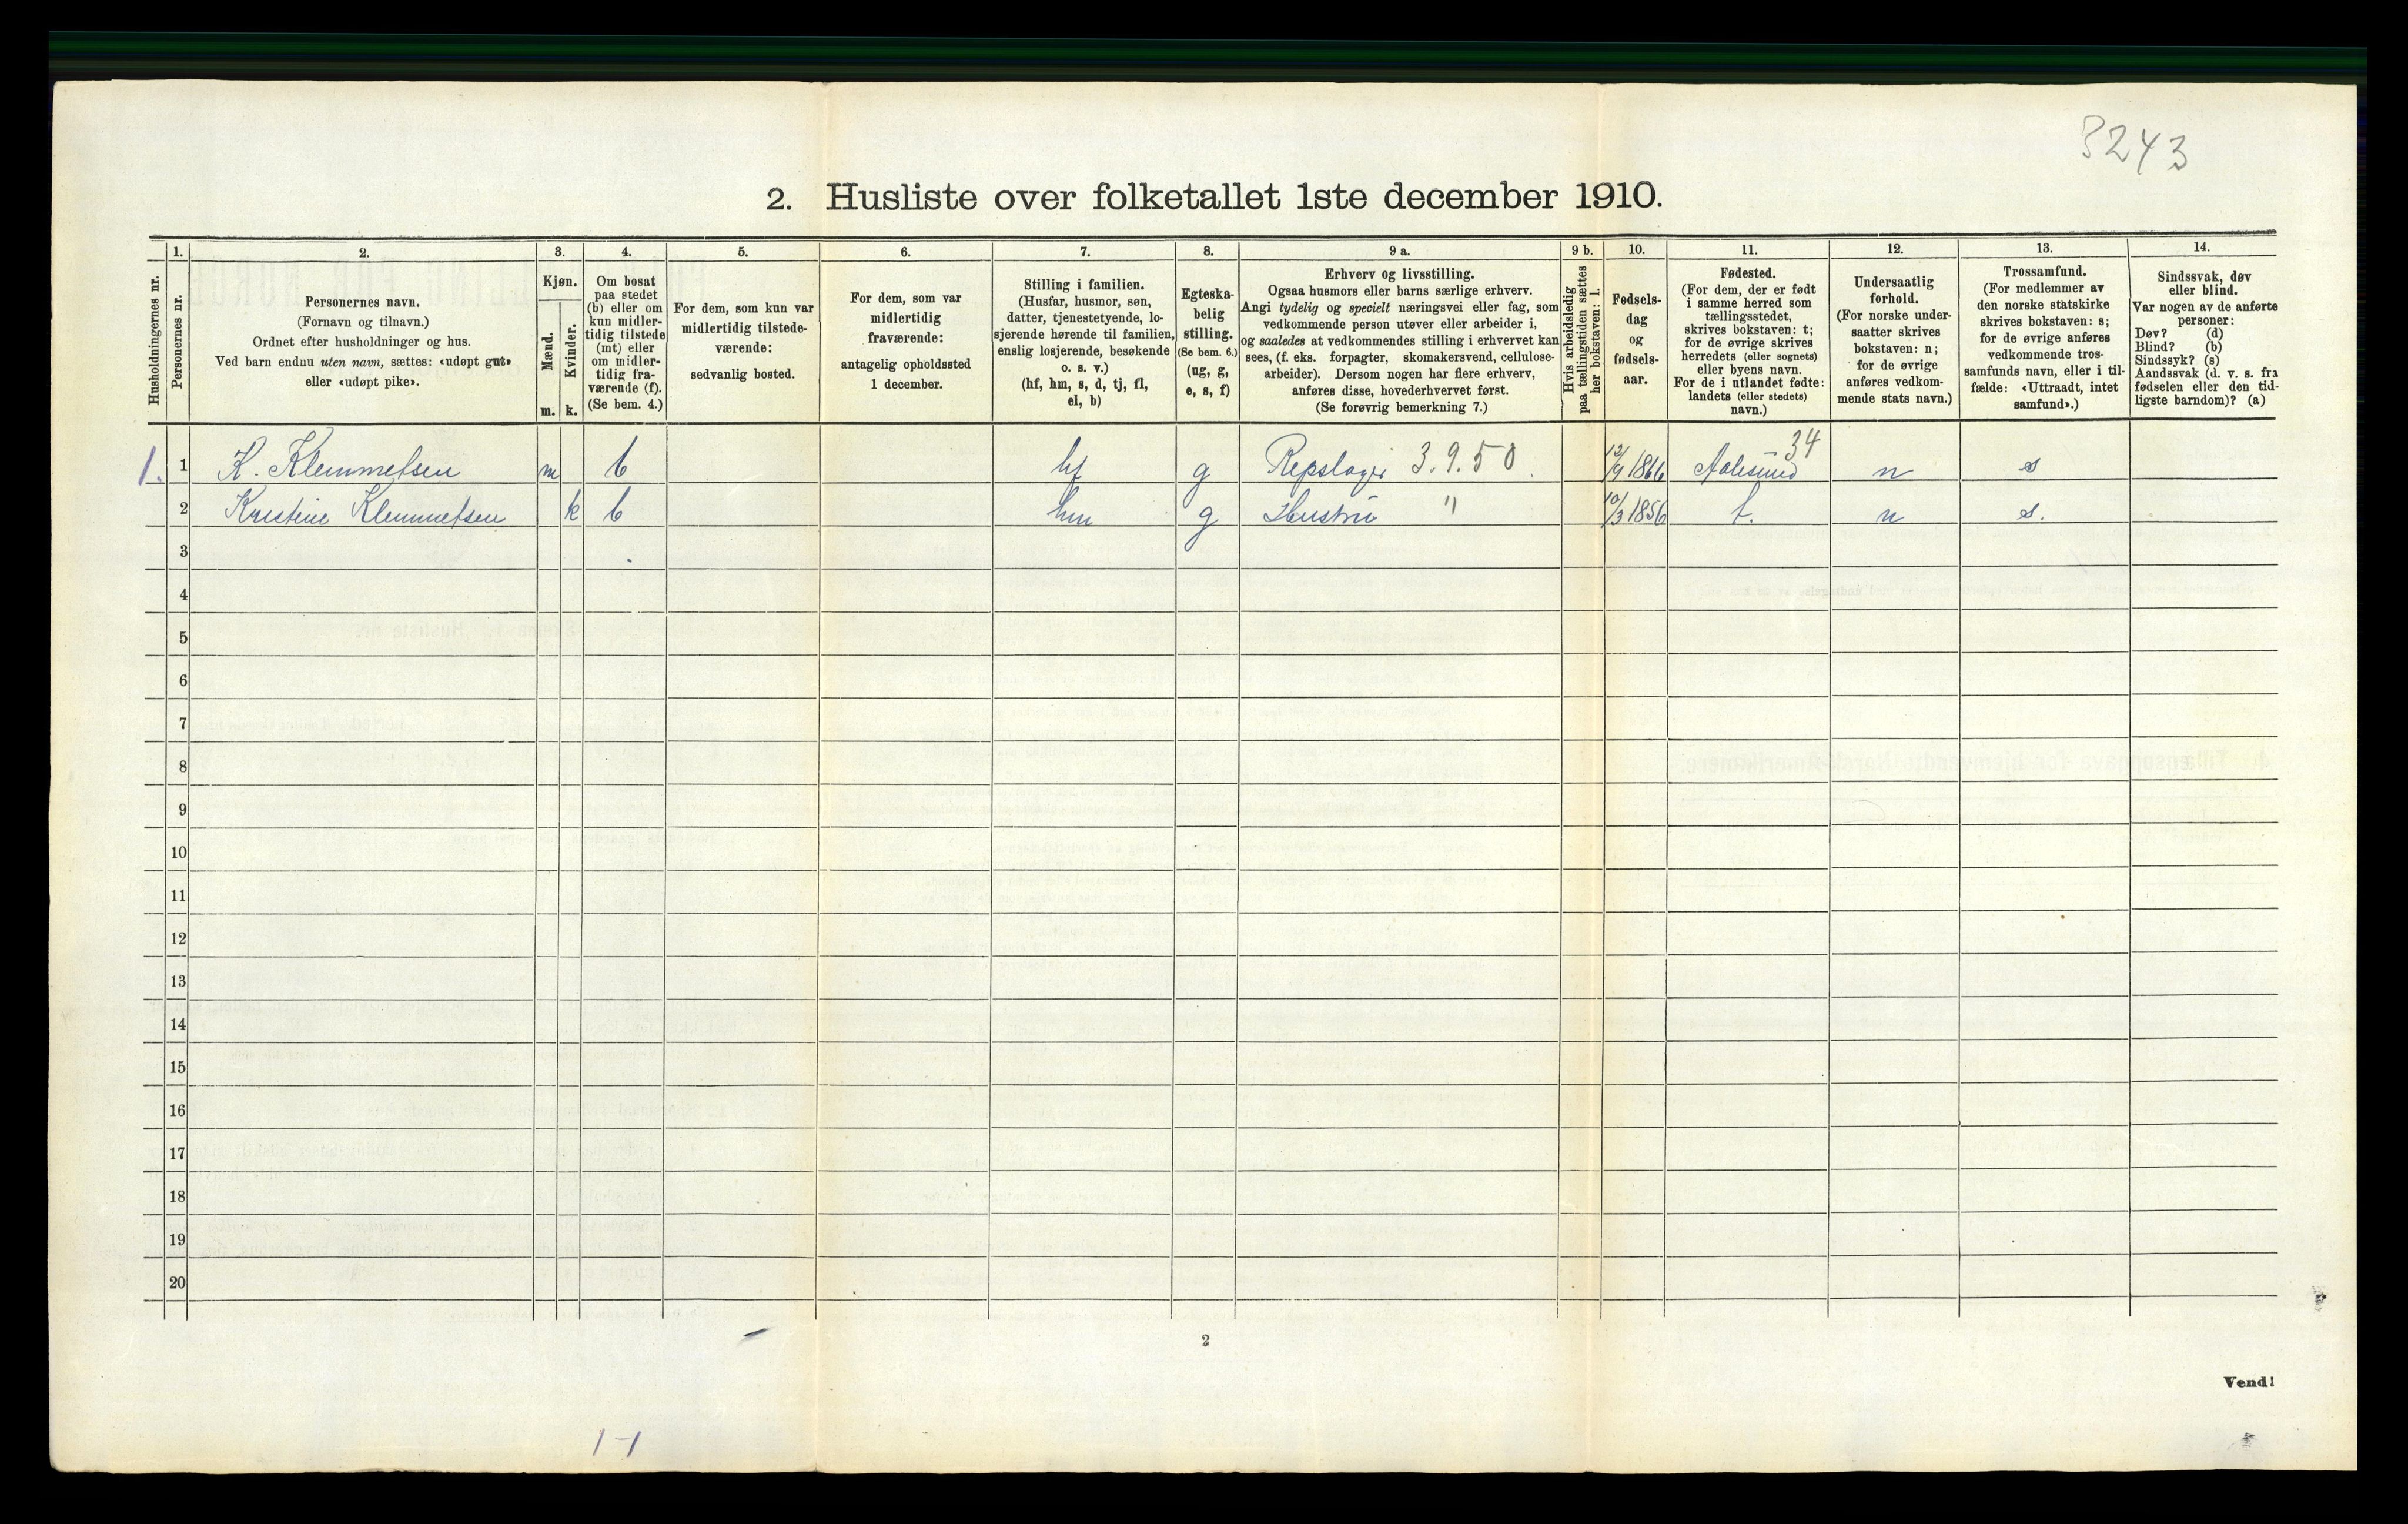 3243
2. Husliste over folketallet 1ste december 1910.
Husholdningernes nr.
1.
Personernes nr.
2.
Personernes navn.
(Fornavn og tilnavn.)
Ordnet efter husholdninger og hus.
Ved barn endnu uten navn, sættes: «udøpt gut»
eller «udøpt pike».
3.
Kjøn.
Mænd.
m.
Kvinder.
k.
4.
Om bosat
paa stedet
(b) eller om
kun midler-
tidig tilstede
(mt) eller
om midler-
tidig fra-
værende (f).
(Se bem. 4.)
5.
For dem, som kun var
midlertidig tilstede-
værende:
sedvanlig bosted.
6.
For dem, som var
midlertidig
fraværende:
antagelig opholdssted
1 december.
7.
Stilling i familien.
(Husfar, husmor, søn,
datter, tjenestetyende, lo-
sjerende hørende til familien,
enslig losjerende, besøkende
o. s. v.)
(hf, hm, s, d, tj, fl,
el, b)
8.
Egteska-
belig
stilling.
(Se bem. 6.)
(ug, g,
e, s, f)
9 a.
Erhverv og livsstilling.
Ogsaa husmors eller barns særlige erhverv.
Angi tydelig og specielt næringsvei eller fag, som
vedkommende person utøver eller arbeider i,
og saaledes at vedkommendes stilling i erhvervet kan
sees, (f. eks. forpagter, skomakersvend, cellulose-
arbeider). Dersom nogen har flere erhverv,
anføres disse, hovederhvervet først.
(Se forøvrig bemerkning 7.)
9 b.
Hvis arbeidsledig
paa tællingstiden sættes
her bokstaven: l.
10.
Fødsels-
dag
og
fødsels-
aar.
11.
Fødested.
(For dem, der er født
i samme herred som
tællingsstedet,
skrives bokstaven: t;
for de øvrige skrives
herredets (eller sognets)
eller byens navn.
For de i utlandet fødte:
landets (eller stedets)
navn.)
12.
Undersaatlig
forhold.
(For norske under-
saatter skrives
bokstaven: n;
for de øvrige
anføres vedkom-
mende stats navn.)
13.
Trossamfund.
(For medlemmer av
den norske statskirke
skrives bokstaven: s;
for de øvrige anføres
vedkommende tros-
samfunds navn, eller i til-
fælde: «Uttraadt, intet
samfund».)
14.
Sindssvak, døv
eller blind.
Var nogen av de anførte
personer:
Døv? (d)
Blind? (b)
Sindssyk? (s)
Aandssvak (d. v. s. fra
fødselen eller den tid-
ligste barndom)? (a)
1. 1 K. Klemmetsen m b hf g Repslager 3.9.50. 12/9 1866 Aalesund 34 n s
2 Kristine Klemmetsen k b hm g Hustru " 10/3 1856 t. n s.
3
4
5
6
7
8
9
10
11
12
13
14
15
16
17
18
19
20
2
Vend!
1-1